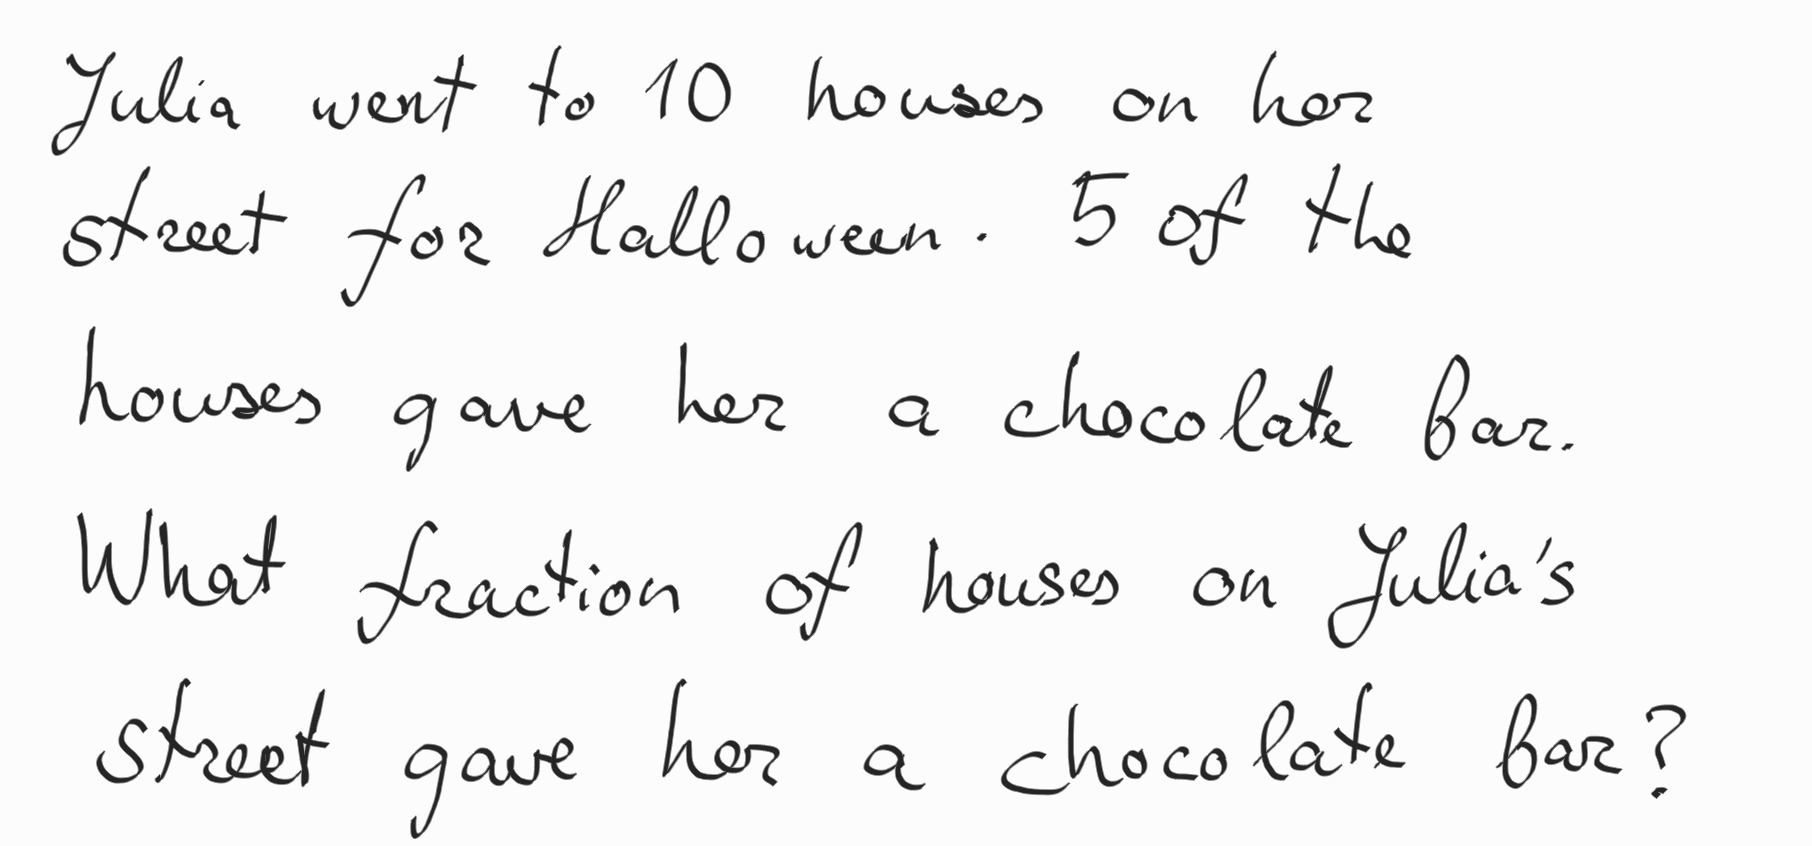 Julia went to 10 houses on her
street for Halloween. 5 of the
houses gave her a chocolate bar.
What fraction of houses on Julia's
street gave her a chocolate bar?